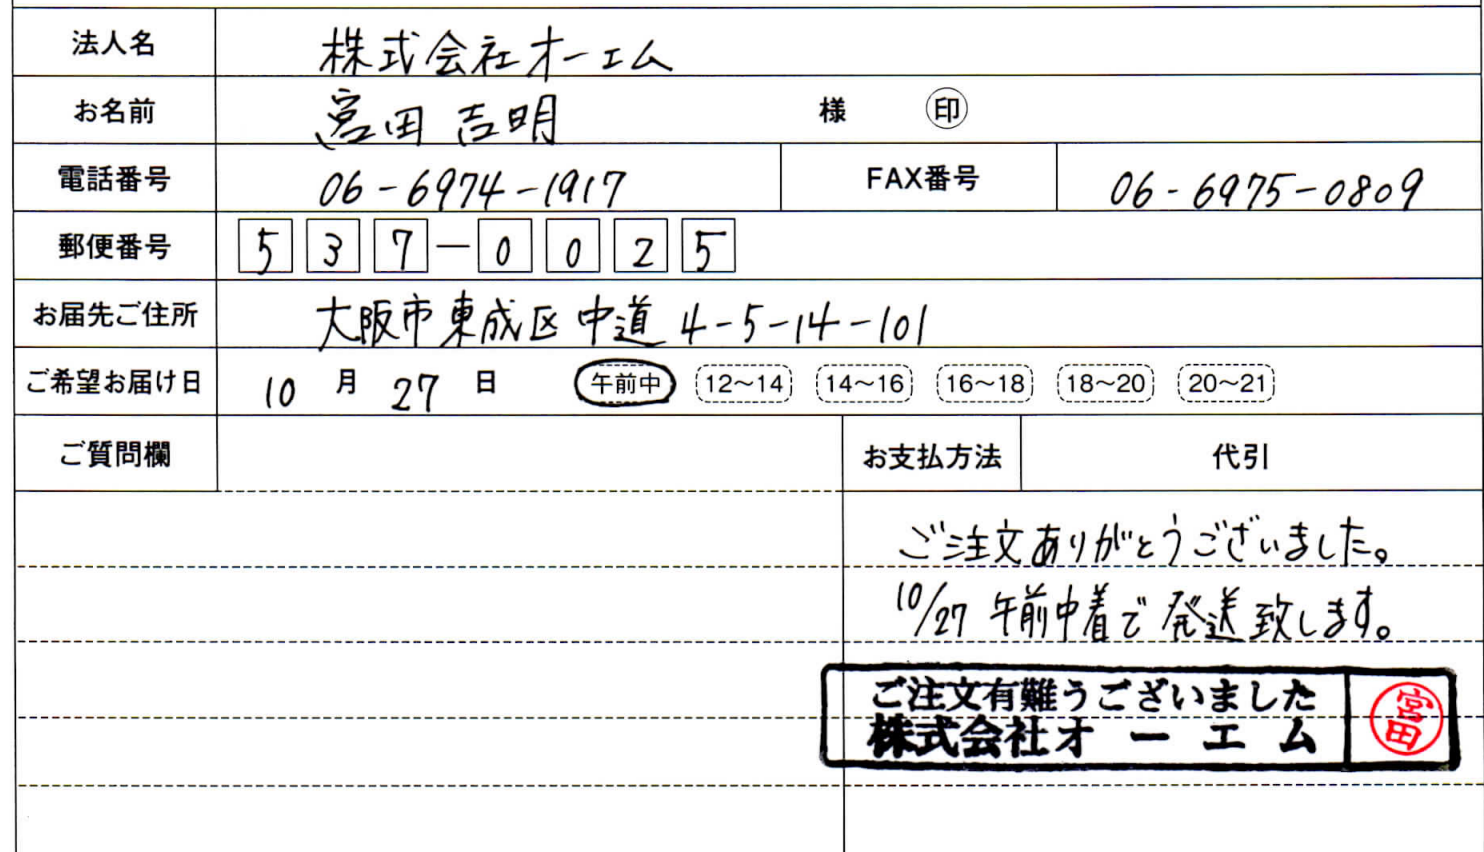 法人名 株式会社オーエム
お名前 宮田 吉明 様 印
電話番号 06-6974-1917 FAX番号 06-6975-0809
郵便番号 537-0025
お届先ご住所 大阪市東成区中道4-5-14-101
ご希望お届け日 10月27日 午前中 12〜14 14〜16 16〜18 18〜20 20〜21
ご質問欄 お支払方法 代引
ご注文ありがとうございました。
10/27 午前中着で発送致します。
ご注文有難うございました
株式会社オーエム
宮田